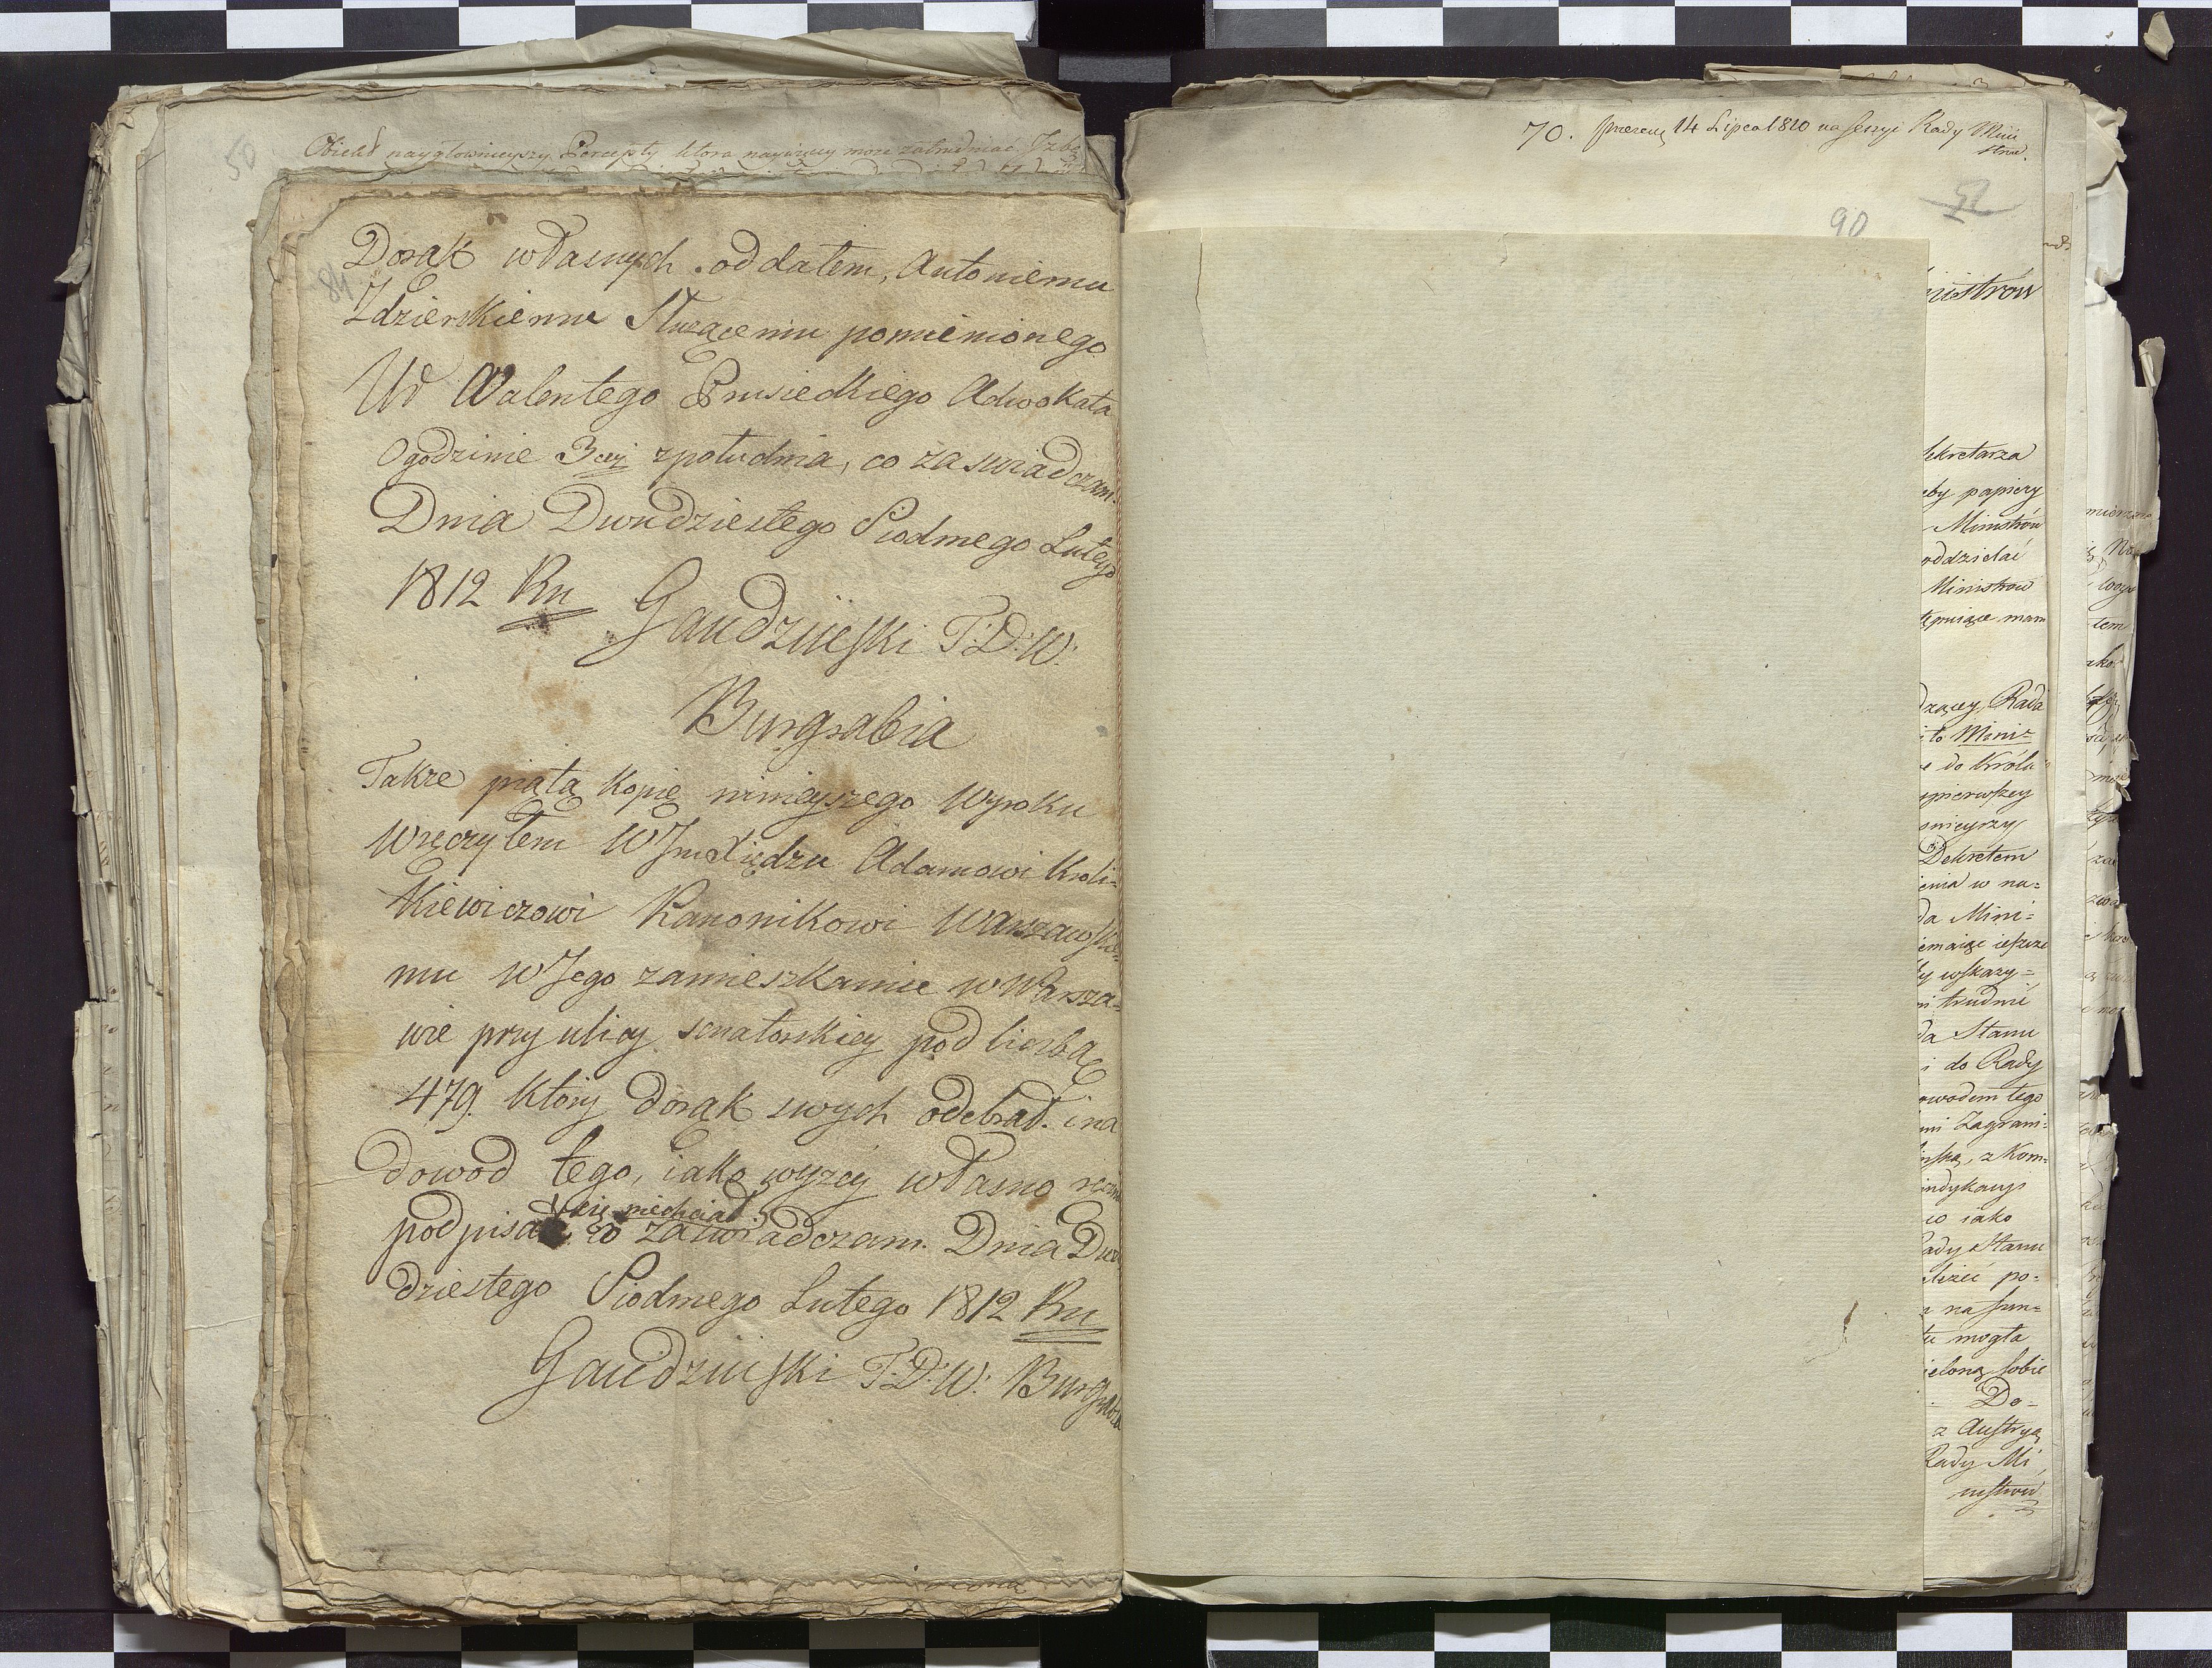 50
Obiekt naygłownieyszy Percepty ktora naywięcy może zatrudniać Izbę
84
Dorąk własnych oddałem, Antoniemu
Zdzierskiemu Słuzącemu pomienionego
Ur Walentego Prusieckiego Adwokata
Ogodzinie 3ciej zpołudnia, co zaswiadczam.
Dnia Dwudziestego Siodmego Lutego
1812 Ru
Gaudziński T:D:W:
Burgrabia
Takze piątą kopię ninieyszego Wyroku
Wręczyłem WJm Xiędzu Adamowi Kroli=
kiewiczowi Kanonikowi Warszawskie=
mu w Jego zamieszkaniu w Warsza=
wie przy ulicy senatorskiey pod liczbą
479. który dorąk swych odebrał. i na
dowod tego, iako wyzey własno ręczn
się niechciał
podpisać co zaswiadczam. Dnia Dwu
dziestego Siodmego Lutego 1812 Ru
Gaudziński T:D:W: Burgrabia
70. 14 Lipca 1810 na sessyi Rady Mini
strow.
52
90
nistrow
sekretarza
eby papiery
Ministrow
oddzielać
Ministrow
tępuiące mam
dzącey, Rada
to Mini=
e do Króla
pierwszey
nieyszy
Dekretem
enia w na=
da Mini=
emaiąc ieszcze
y wskazy=
trudnić
da Stanu
i do Rady
owodem tego
mi Zagrani=
z Kom=
indykacyi
co iako
ady Stanu
po=
na fun=
tu mogła
ieloną sobie
Do=
z Austryą
Rady Mi
nistrow